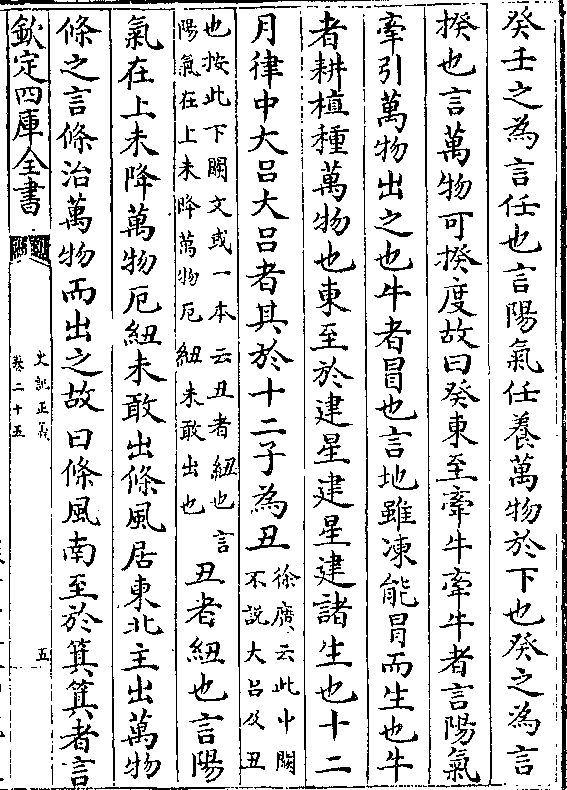 癸壬之為言任也言陽氣任養萬物於下也癸之為言
揆也言萬物可揆度故曰癸東至牽牛牽牛者言陽氣
牽引萬物出之也牛者冒也言地雖凍能冒而生也牛
者耕植種萬物也東至於建星建星建諸生也十二
月律中大呂大呂者其於十二子為丑
徐廣云此中闕
不說大呂及丑
也按此下闕文或一本云丑者紐也言
陽氣在上未降萬物厄紐未敢出也
丑者紐也言陽
氣在上未降萬物厄紐未敢出條風居東北主出萬物
條之言條治萬物而出之故曰條風南至於箕箕者言
欽定四庫全書
史記正義
卷二十五
五